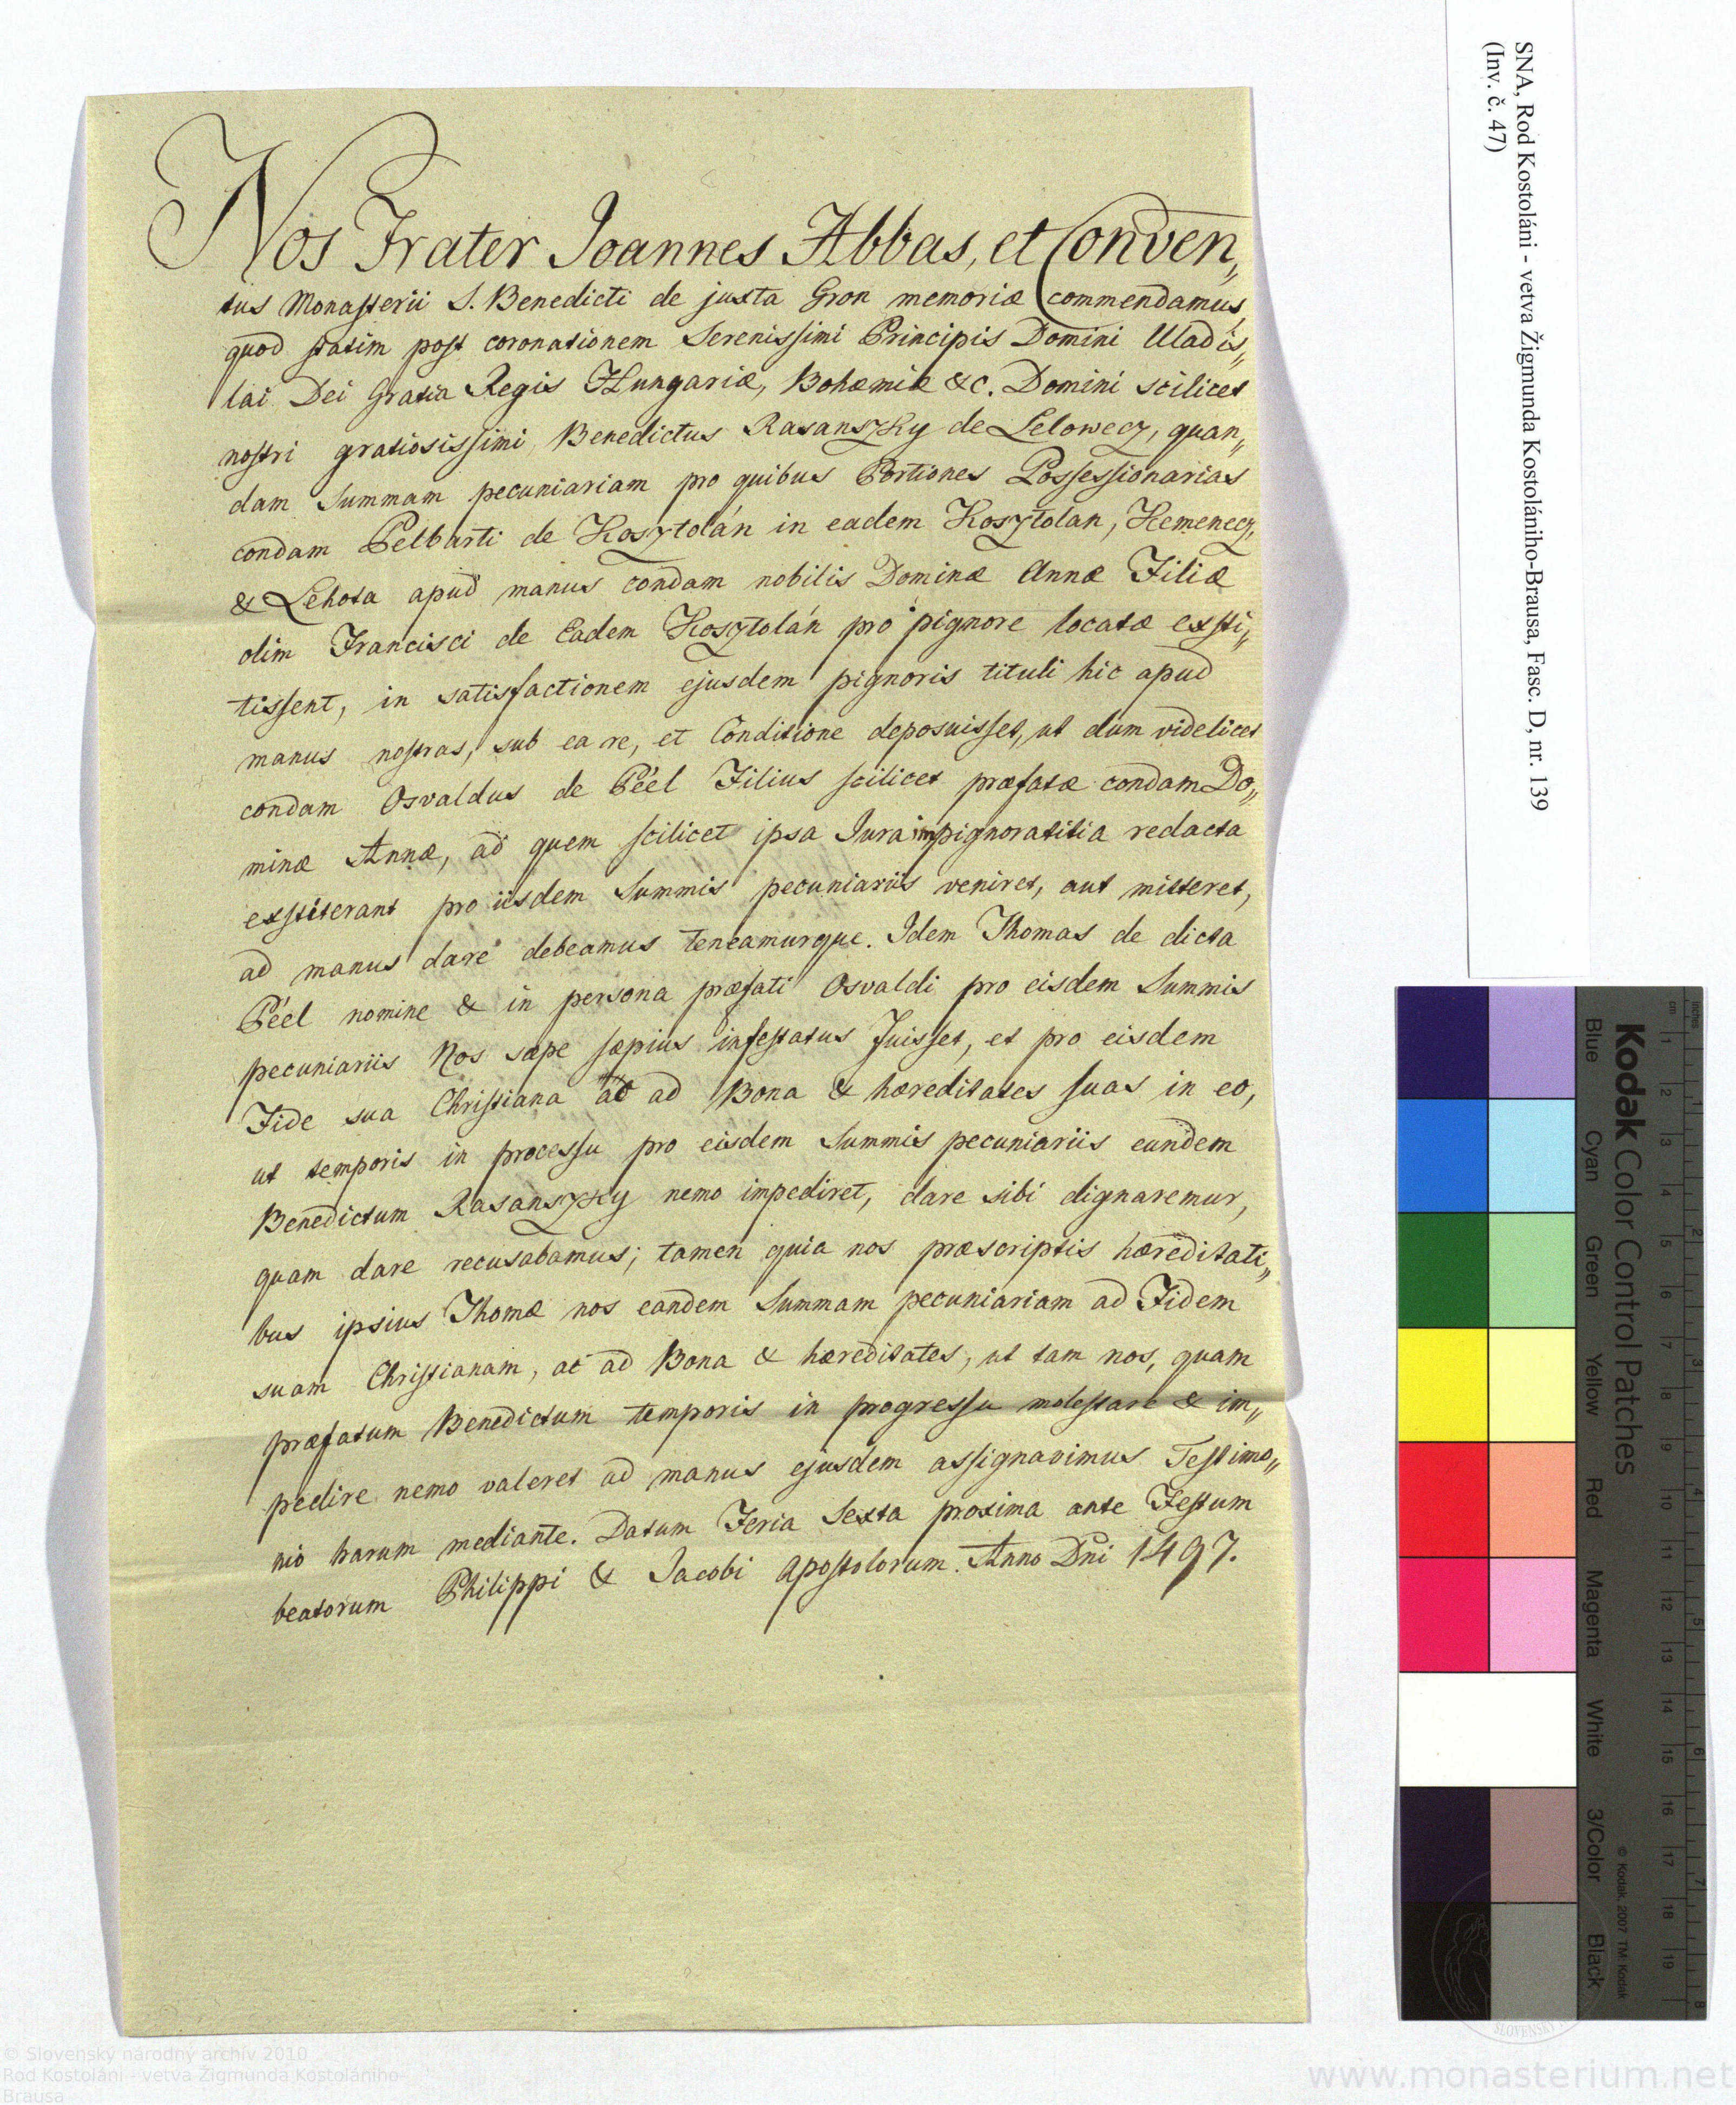 Nos Frater Joannes Abbas, et Conven„
tus Monasterii S. Benedicti de juxta Gron memoriæ commendamus,
quod statim post coronationem Serenissimi Principis Domini Uladis„
lai Dei Gratia Regis Hungariæ, Bohæmiæ &c. Domini scilicet
nostri gratiosissimi, Benedictus Rasanszky de Lelowecz, quan„
dam Summam pecuniariam pro quibus Portiones Possessionarias
condam Pelbarti de Kosztolán in eadem Kosztolan, Kemenecz,
& Lehota apud manus condam nobilis Dominæ Annæ Filiæ
olim Francisci de Eadem Kosztolán pro pignore locatæ exsti„
tissent, in satisfactionem ejusdem pignoris tituli hic apud
manus nostras, sub ea re, et Conditione deposuisset, ut dum videlicet
condam Osvaldus de Péel Filius scilicet præfatæ condam Do„
minæ Annæ, ad quem scilicet ipsa Jura impignoratitia redacta
exstiterant pro iisdem Summis pecuniariis veniret, aut mitteret,
ad manus dare debeamus teneamurque. Idem Thomas de dicta
Péel nomine & in persona præfati Osvaldi pro eisdem Summis
pecuniariis Nos sæpe sæpius infestatus fuisset, et pro eisdem
Fide sua Christiana ac ad Bona & hæreditates suas in eo,
ut temporis in processu pro eisdem Summis pecuniariis eundem
Benedictum Rasanszky nemo impediret, dare sibi dignaremur,
quam dare recusabamus; tamen quia nos præscriptis hæreditati„
bus ipsius Thomæ nos eandem Summam pecuniariam ad Fidem
suam Christianam, ac ad Bona & hæreditates, ut tam nos, quam
præfatum Benedictum temporis in progressu molestare & im„
pedire nemo valeret ad manus ejusdem assignavimus Testimo„
nio harum mediante. Datum Feria Sexta proxima ante Festum
beatorum Philippi & Jacobi Apostolorum. Anno Dni 1497.
SNA, Rod Kostoláni - vetva Žigmunda Kostolániho-Brausa, Fasc. D, nr. 139
(Inv. č. 47)
Kodak Color Control Patches
Blue Cyan Green Yellow Red Magenta White 3/Color Black
© Kodak, 2007 TM: Kodak
inches 1 2 3 4 5 6 7 8
cm 1 2 3 4 5 6 7 8 9 10 11 12 13 14 15 16 17 18 19
© Slovenský národný archív 2010
Rod Kostoláni - vetva Žigmunda Kostolániho-
Brausa
www.monasterium.net